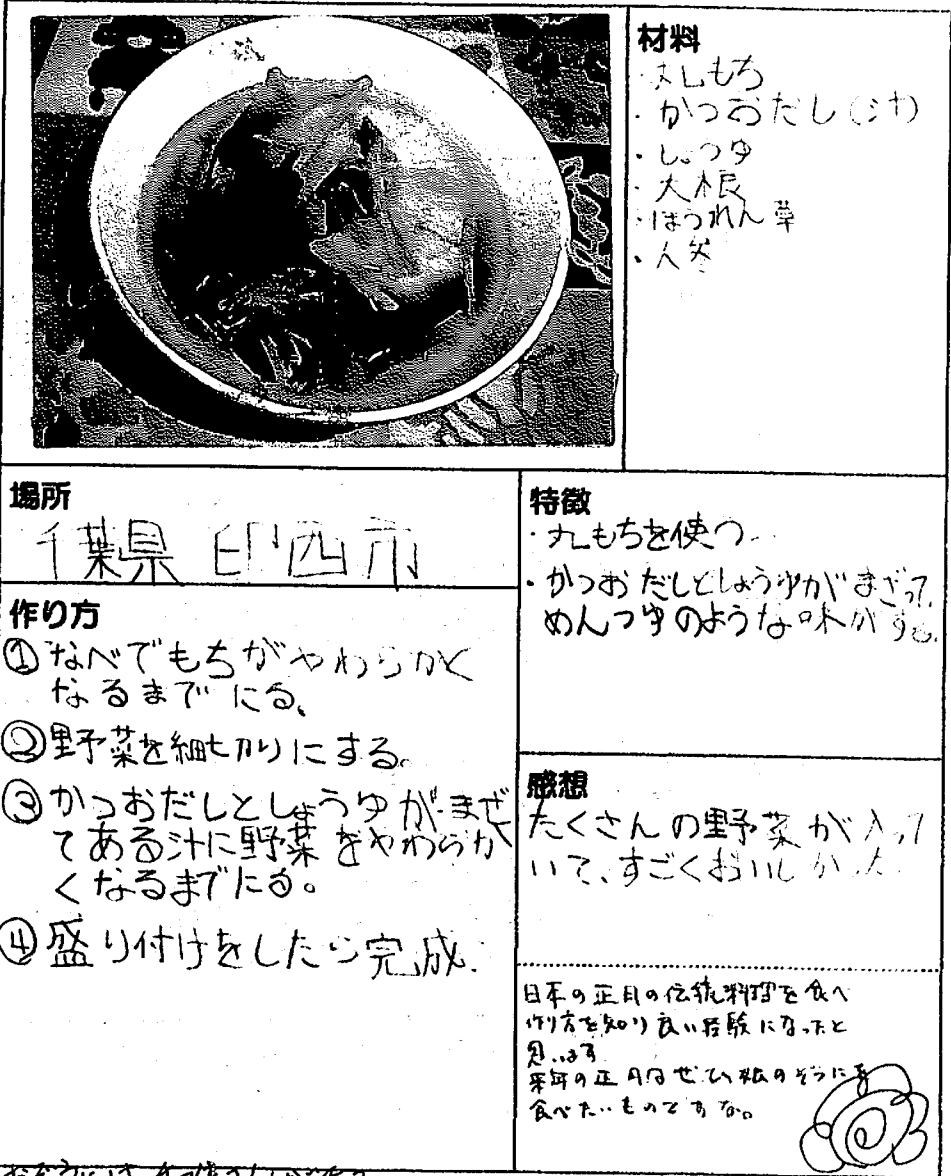 材料
・丸もち
・かつおだし(汁)
・しょうゆ
・大根
・ほうれん草
・人参
場所
千葉県 印西市
作り方
①なべでもちがやわらかく
なるまでにる。
②野菜を細切りにする。
③かつおだしとしょうゆがまぜ
てある汁に野菜をやわらか
くなるまでにる。
④盛り付けをしたら完成.
特徴
・丸もちを使う
・かつおだしとしょうゆがまざって、
めんつゆのような味がする。
感想
たくさんの野菜が入って
いて、すごくおいしかった
日本の正月の伝統料理を食べ
作り方を知り良い経験になったと
思います
来年の正月はぜひ私のぞうにを
食べたいものですな。